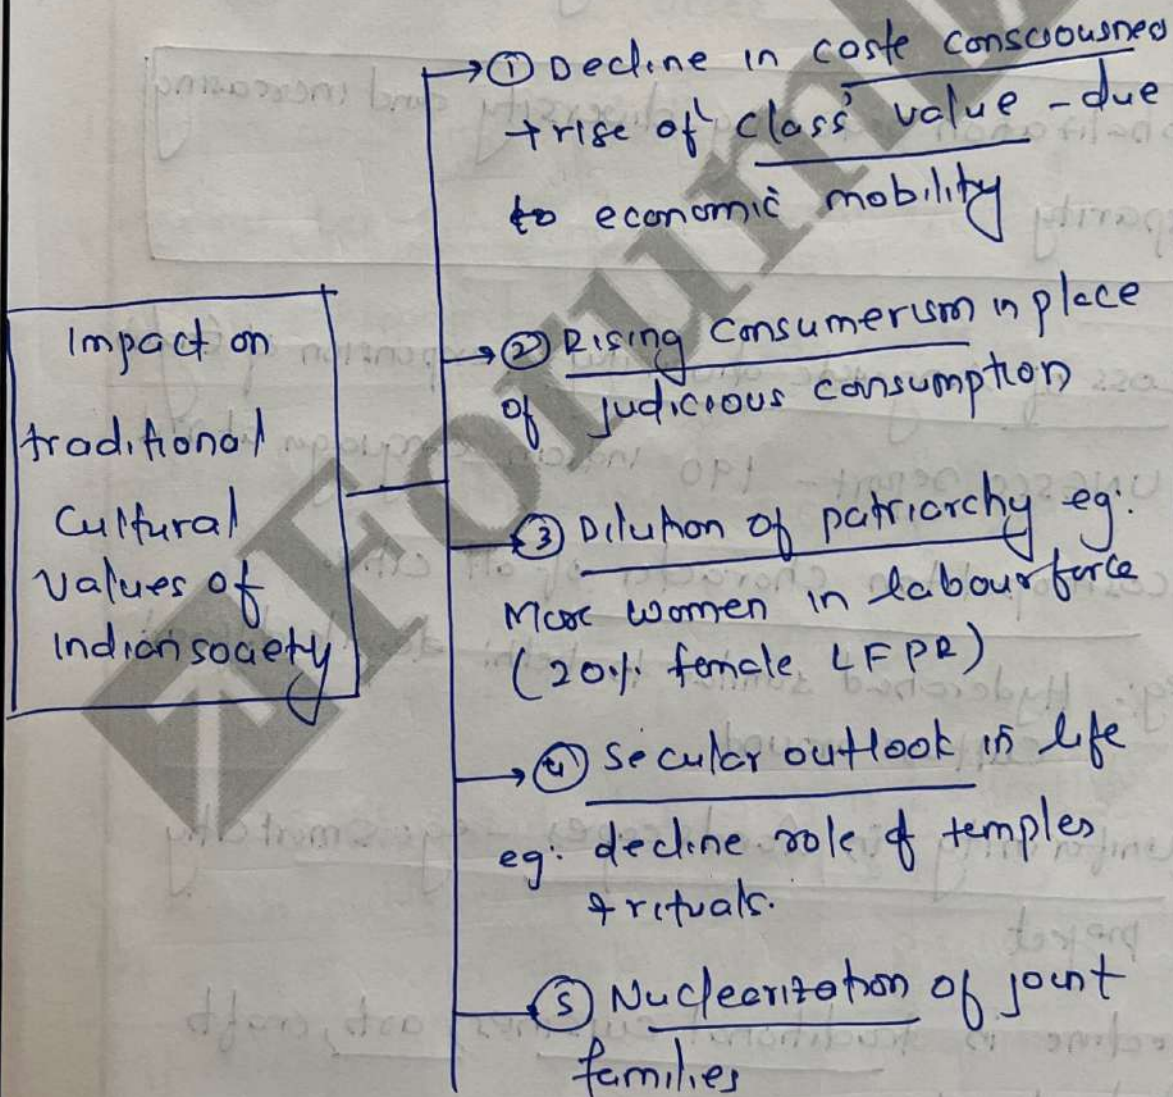 Impact on
traditional
Cultural
values of
Indian society
→ ① Decline in caste consciousness
+ rise of 'class' value - due
to economic mobility
→ ② Rising consumerism in place
of judicious consumption
→ ③ Dilution of patriarchy eg:
More women in labour force
(20% female LFPR)
→ ④ Secular outlook in life
eg: decline role of temples
& rituals.
→ ⑤ Nuclearization of joint
families
ZForum